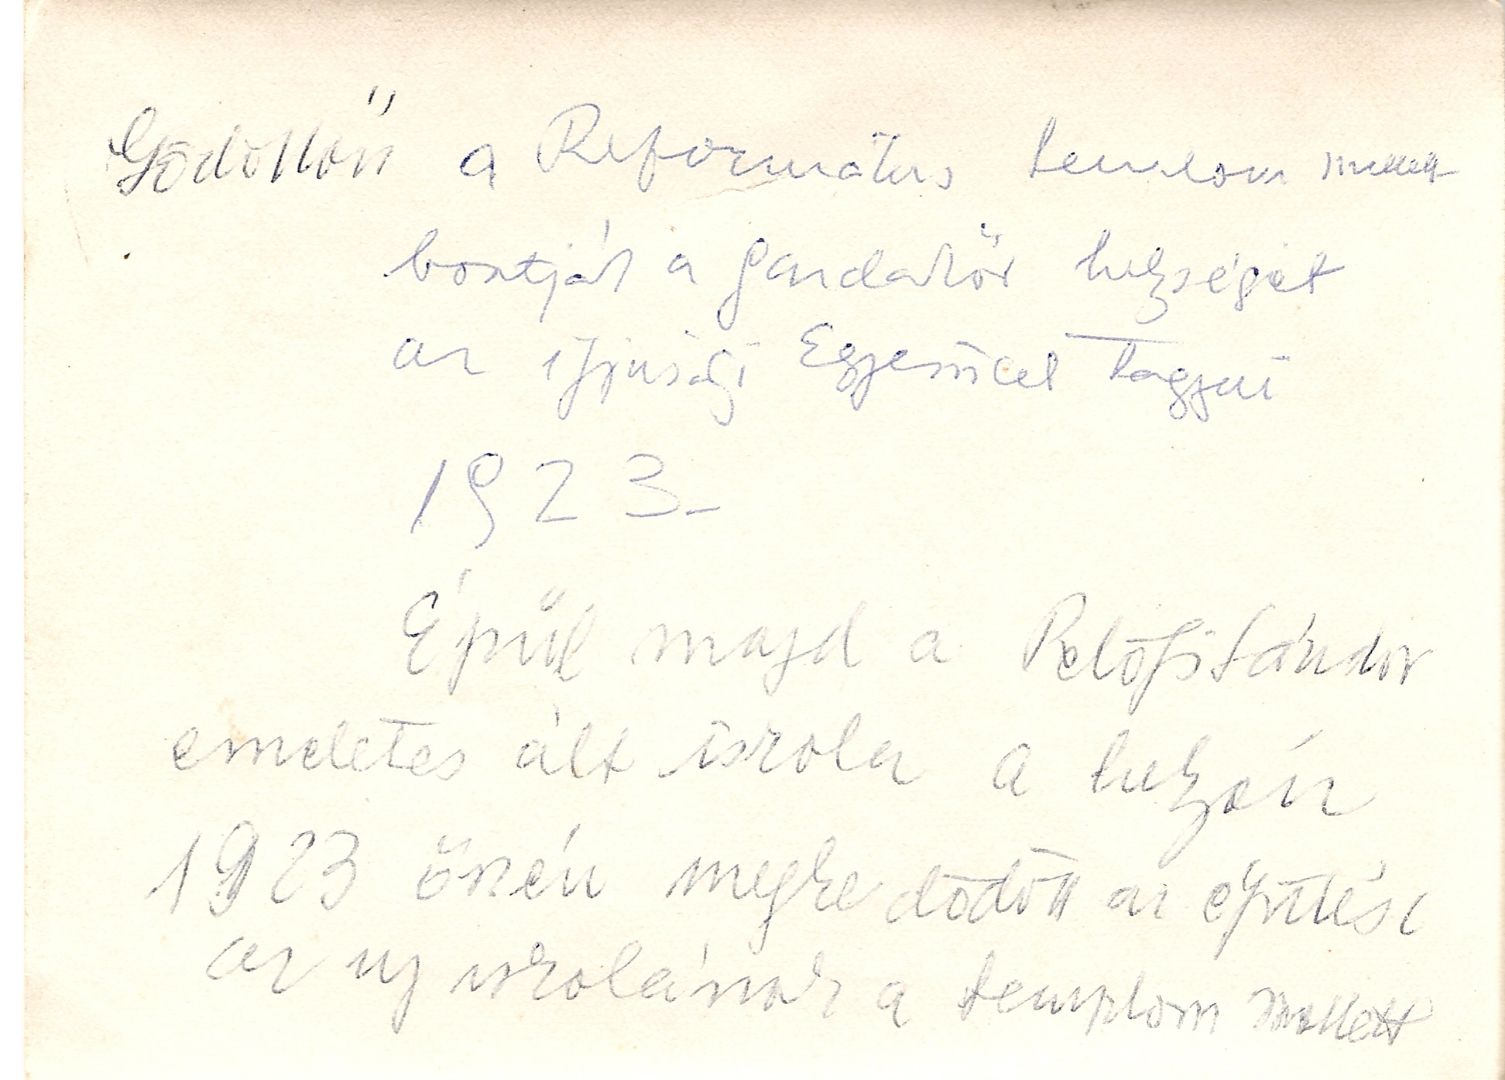 Gödöllőn a Református templom mellett
bontják a gazdakör helységét
az ifjusági Egyesület tagjai
1923-
Épül majd a Petőfi Sándor
emeletes ált iskola a helyén
1923 őszén megkezdődött az építése
az uj iskolának a templom mellett